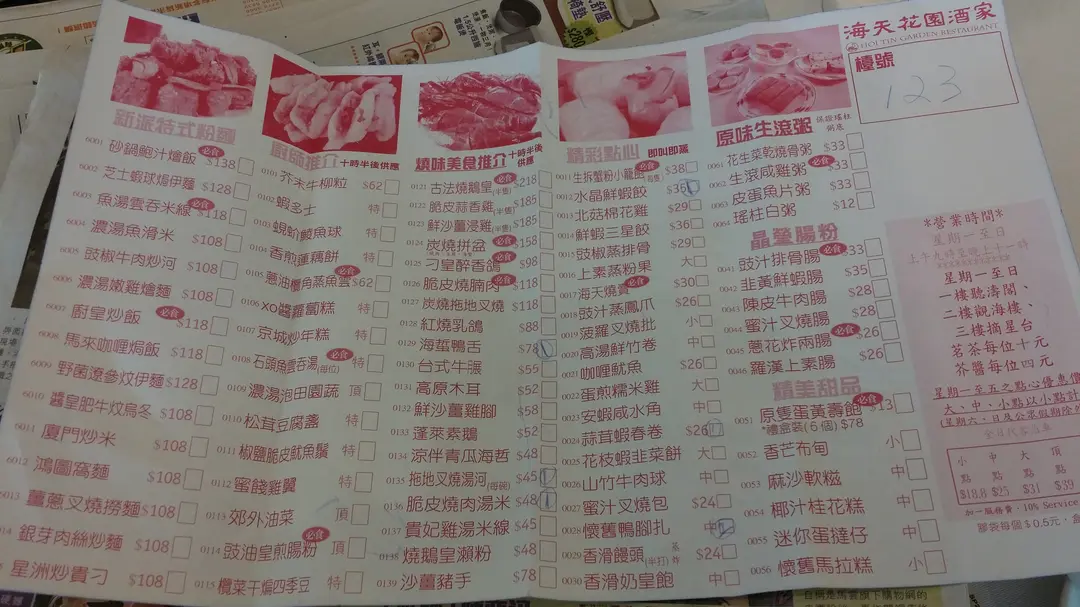 海天花園酒家
HOI TIN GARDEN RESTAURANT
檯號
123
新派特式粉麵
6001 砂鍋鮑汁燴飯 必食 $138
6002 芝士蝦球焗伊麵 $128
6003 魚湯雲吞米線 必食 $118
6004 濃湯魚滑米 $108
6005 豉椒牛肉炒河 $108
6006 濃湯嫩雞燴麵 $108
6007 廚皇炒飯 必食 $118
6008 馬來咖喱焗飯 $118
6009 野菌遼參炆伊麵 $128
6010 醬皇肥牛炆烏冬 $108
6011 廈門炒米 $108
6012 鴻圖窩麵 $108
6013 薑蔥叉燒撈麵 $108
6014 銀芽肉絲炒麵 $108
星洲炒貴刁 $108
廚師推介 十時半後供應
0101 芥末牛柳粒 $62
0102 蝦多士 特
0103 蝦蚧鯪魚球 特
0104 香煎蓮藕餅 特
0105 蔥油欖角蒸魚雲 必食 $62
0106 XO醬蘿蔔糕 特
0107 京城炒年糕 特
0108 石頭魚雲吞湯(每位) 必食 特
0109 濃湯泡田園蔬 頂
0110 松茸豆腐盞 特
0111 椒鹽脆皮魷魚鬚 特
0112 蜜餞雞翼 特
0113 郊外油菜 頂
0114 豉油皇煎腸粉 必食 頂
0115 欖菜干煸四季豆 特
燒味美食推介 十時半後供應
0121 古法燒鵝皇(半隻) 必食 $218
0122 脆皮蒜香雞(半隻) $185
0123 鮮沙薑浸雞(半隻) $185
0124 炭燒拼盆 必食 $158
0125 刁皇醉香鴿 必食 $98
0126 脆皮燒腩肉 必食 $118
0127 炭燒拖地叉燒 $118
0128 紅燒乳鴿 $88
0129 海蜇鴨舌 $78
0130 台式牛𦟌 $55
0131 高原木耳 $52
0132 鮮沙薑雞腳 $58
0133 蓬萊素鵝 $52
0134 涼伴青瓜海哲 $48
0135 拖地叉燒湯河(每碗) $45
0136 脆皮燒肉湯米 $48
0137 貴妃雞湯米線 $45
0138 燒鵝皇瀨粉 $48
0139 沙薑豬手 $78
精彩點心 即叫即蒸
0011 生拆蟹粉小籠飽 必食 $38
0012 水晶鮮蝦餃 $36
0013 北菇棉花雞 $29
0014 鮮蝦三星餃 $36
0015 豉椒蒸排骨 $29
0016 上素蒸粉果 大
0017 海天燒賣 必食 $30
0018 豉汁蒸鳳爪 $26
0019 菠蘿叉燒批 小
0020 高湯鮮竹卷 中
0021 咖喱魷魚 $26
0022 蜜煎糯米雞 大
0023 安蝦咸水角 中
0024 蒜茸蝦春卷 $26
0025 花枝蝦韭菜餅 大
0026 山竹牛肉球 中
0027 蜜汁叉燒包 $24
0028 懷舊鴨腳扎 中
0029 香滑饅頭(半打) 蒸 炸 $24
0030 香滑奶皇飽 中
原味生滾粥 保證瑤柱粥底
0061 花生菜乾燒骨粥 $33
0062 生滾咸雞粥 必食 $33
0063 皮蛋魚片粥 $33
0064 瑤柱白粥 $12
晶瑩腸粉
0041 豉汁排骨腸 必食 $33
0042 韭黃鮮蝦腸 $35
0043 陳皮牛肉腸 $28
0044 蜜汁叉燒腸 $28
0045 蔥花炸兩腸 必食 $26
0046 羅漢上素腸 $26
精美甜品
0051 原隻蛋黃壽飽 必食 $13
*禮盒裝(6個) $78
0052 香芒布甸 小
0053 麻沙軟糍 中
0054 椰汁桂花糕 中
0055 迷你蛋撻仔 中
0056 懷舊馬拉糕 小
*營業時間*
星期一至日
上午九時至晚上十一時
星期一至日
一樓聽濤閣、
二樓觀海樓、
三樓摘星台
茗茶每位十元
芥醬每位四元
星期一至五之點心優惠價
大、中、小點以小點計
(星期六、日及公眾假期除外)
全日代客泊車
小 中 大 頂
點 點 點 點
$18.8 $25 $31 $39
加一服務費,10% Service
膠袋每個$0.5元,